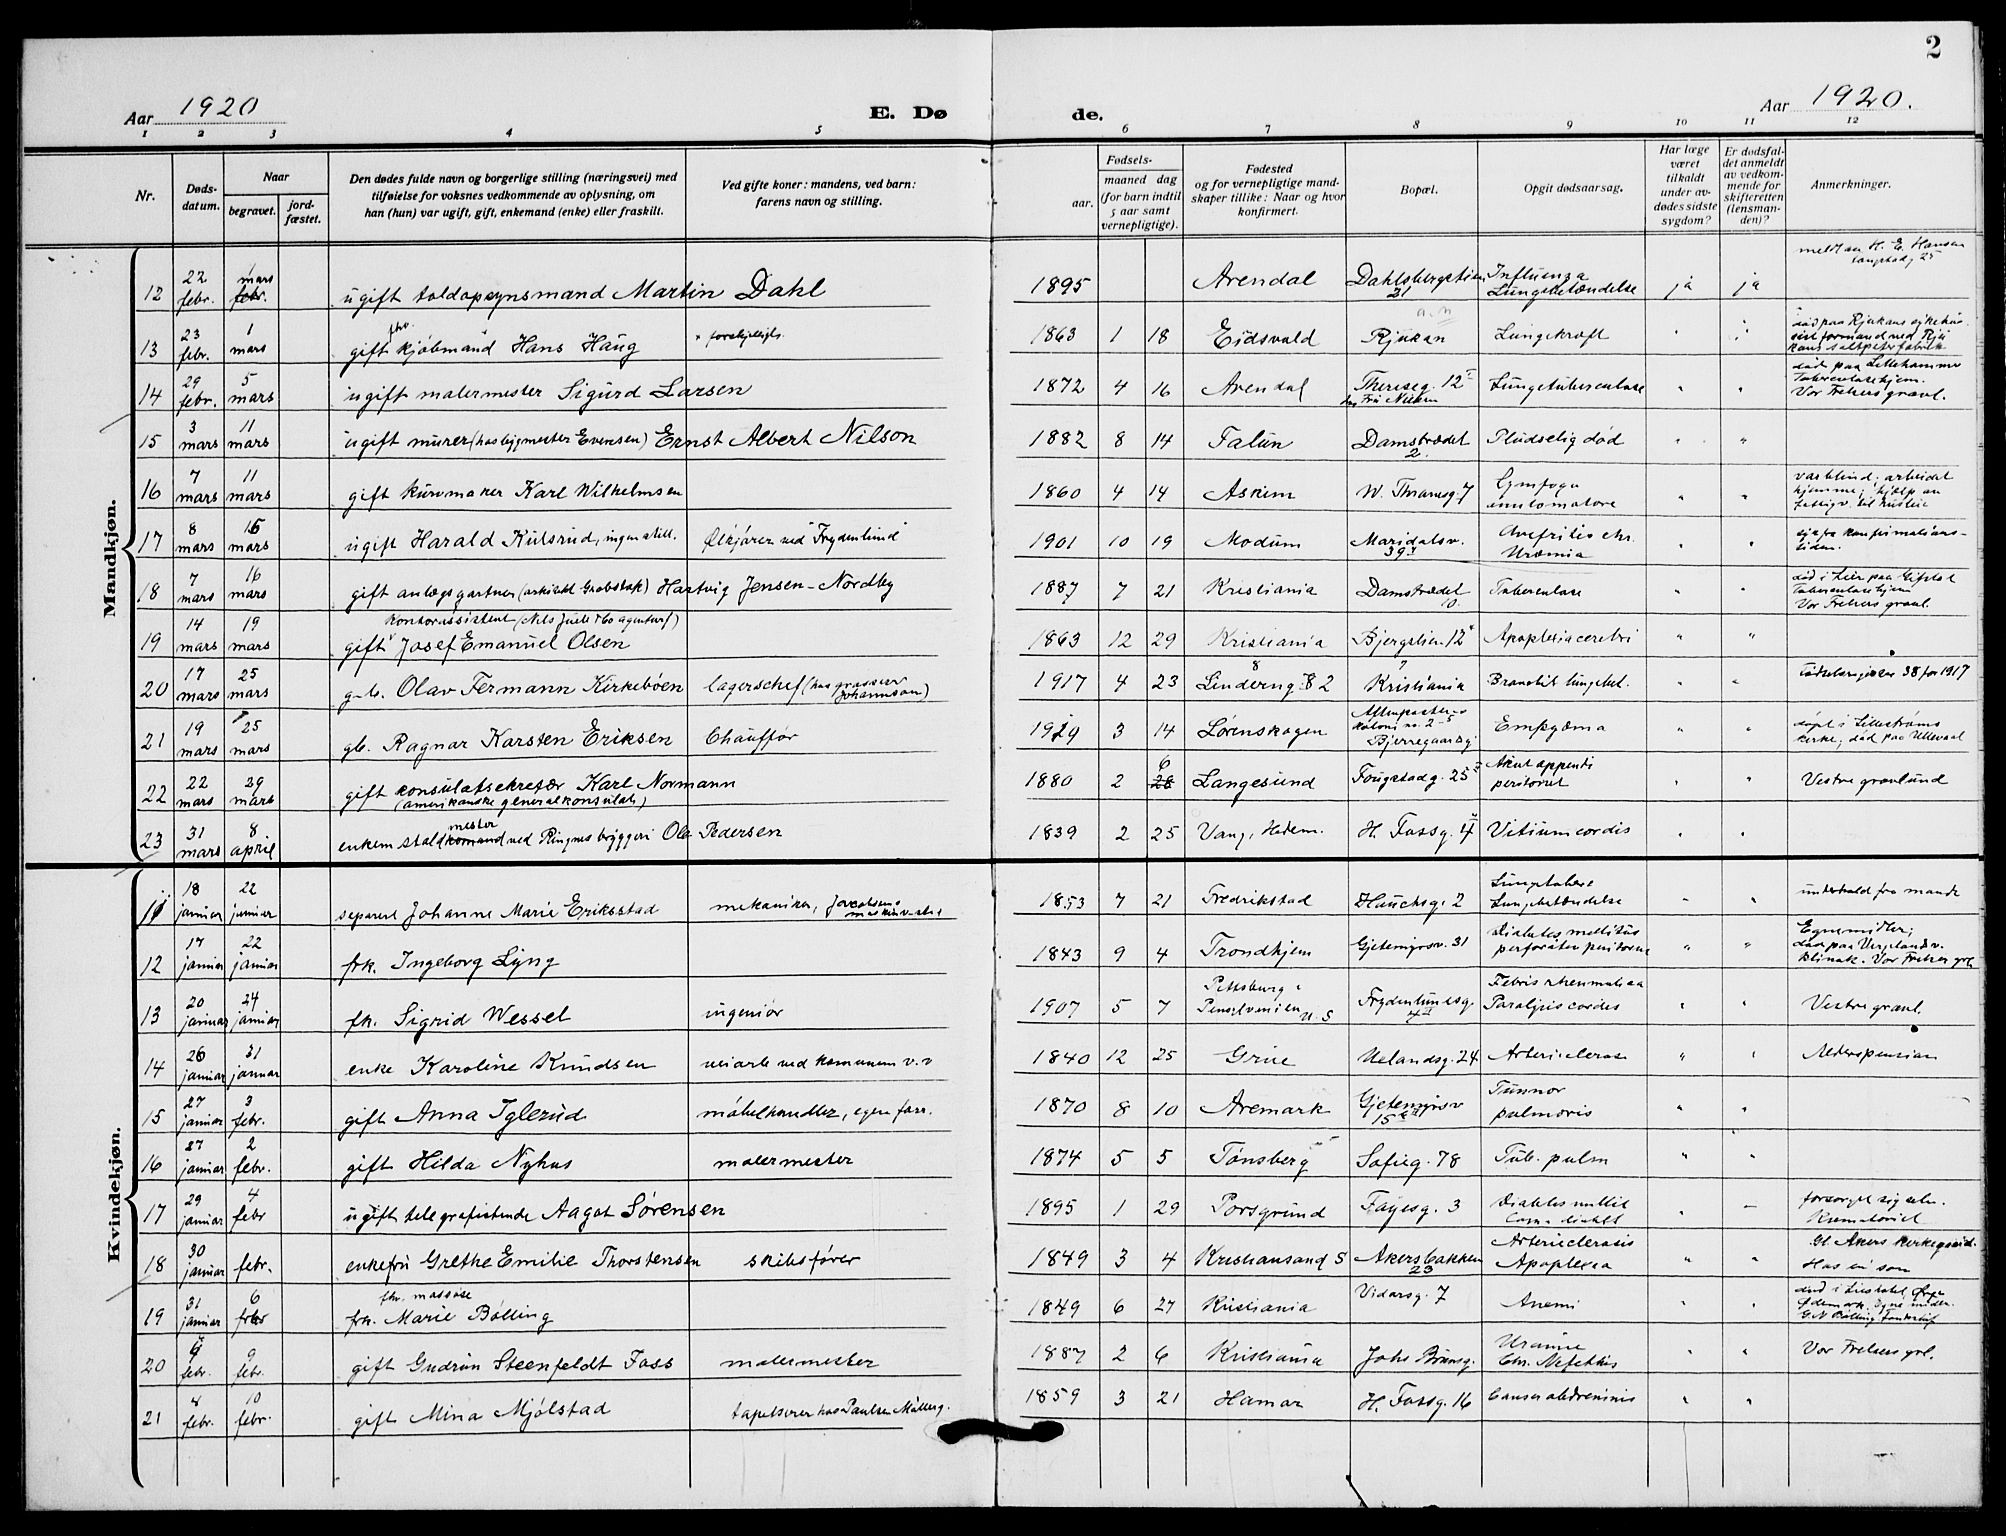 2
Aar 1920 E. Dø de. Aar 1920.
1 2 3 4 5 6 7 8 9 10 11 12
Nr. Døds-datum. Naar begravet. jord-fæstet. Den dødes fulde navn og borgerlige stilling (næringsvei) med tilføielse for voksnes vedkommende av oplysning, om han (hun) var ugift, gift, enkemand (enke) eller fraskilt. Ved gifte koner: mandens, ved barn: farens navn og stilling. Fødsels- aar. maaned dag (for barn indtil 5 aar samt vernepligtige). Fødested og for vernepligtige mand-skaper tillike: Naar og hvor konfirmert. Bopæl. Opgit dødsaarsag. Har læge været tilkaldt under av-dødes sidste sygdom? Er dødsfal-det anmeldt av vedkom-mende for skifteretten (lensman-den)? Anmerkninger.
Mandkjøn.
12 22 febr. mars ugift toldopsynsmand Martin Dahl 1895 Arendal Dahlsbergstien 21 Influenza Lungebetændelse ja ja meldt av H. E. Hansen
13 23 febr. 1 mars gift fhv. kjøbmand Hans Haug 1863 1 18 Eidsvold Rjukan Lungekræft død paa Rjukans sykehus formand ved Rjukans salpeterfabrik
14 29 febr. 5 mars ugift malermester Sigurd Larsen 1872 4 16 Arendal Thereseg. 12 hos Fru Nielsen Lungetuberculose " " død paa Lillehammer Tuberculosehjem. Vor Frelsers gravl.
15 3 mars 11 mars ugift murer (hos bygmester Evensen) Ernst Albert Nilson 1882 8 14 Falun Damstrædet 2. Pludselig død " "
16 7 mars 11 mars gift kurvmaker Karl Wilhelmsen 1860 4 14 Askim W. Thranesg. 7 " " var blind; arbeidet hjemme; hjælp av
17 8 mars 15 mars ugift Harald Kulsrud, ingen still. Ølkjører ved Frydenlund 1901 10 19 Modum Maridalsv. 39 Nefritis chr. Uræmia " " syk fra konfirmations-tiden.
18 7 mars 16 mars gift anlægsgartner (arkitekt Grabstok) Hartvig Jensen-Nordby 1887 7 21 Kristiania Damstrædet 10. Tuberculose " " død i Lier paa Tuberculosehjem Vor Frelsers gravl.
19 14 mars 19 mars kontorassistent (Nils Juell & Co agentur) gift Josef Emanuel Olsen 1863 12 29 Kristiania Bjergstien 12 Apoplexia cerebri " "
20 17 mars 25 mars g.b. Olav Fermann Kirkebøen lagerschef (hos grosserer Johannson) 1917 4 23 Linderng. 2 Kristiania " " Fødselsregister 38 for 1917
21 19 mars 25 mars gb. Ragnar Karsten Eriksen Chauffør 1919 3 14 Lørenskogen Bjerregaardsg Empyæma " " døpt i Lillestrøms kirke; død paa Ullevaal
22 22 mars 29 mars gift konsulatsekretær Karl Normann (amerikanske generalkonsulat) 1880 2 6 Langesund Fougstadg. 25 Akut appendi peritonit " " Vestre gravlund
23 31 mars 8 april enkem. staldmester ved Ringnes bryggeri Ole Pedersen 1839 2 25 Vang, Hedem. H. Fossg. 4 Vitium cordis " "
Kvindekjøn.
11 18 januar 22 januar separert Johanne Marie Eriksstad mekaniker, 1853 7 21 Fredrikstad Hauchsg. 2 Lungebetændelse " " underhold fra mand
12 17 januar 22 januar frk. Ingeborg Lyng 1843 9 4 Trondhjem Gjetemyrsv. 31 Diabetes mellitus " " Egne midler; død paa Vergelandsv. klinik. Vor Frelser grl.
13 20 januar 24 januar fk. Sigrid Wessel ingeniør 1907 5 7 Pittsburg Pensylvanien U. S Frydenlundsg. 4 Febris rheumatica Paralysis cordis " " Vestre gravl.
14 26 januar 31 januar enke Karoline Knudsen veiarb. ved kommunen v.v 1840 12 25 Grue Uelandsg. 24 Arteriosclerose " " Alderspension
15 27 januar 3 febr. gift Anna Iglerud møbelhandler, egen forr. 1870 8 10 Aremark Gjetemyrsv 15 Tumor pulmonis " "
16 27 januar 2 febr. gift Hilda Nyhus malermester 1874 5 5 Tønsberg Sofieg. 78 Tub. pulm " "
17 29 januar 4 febr ugift telegrafistinde Aagot Sørensen 1895 1 29 Porsgrund Fayesg. 3 Diabetes mellit Coma diabet " forsørget sig selv. Krematoriet
18 30 januar febr. enkefru Grethe Emilie Thorstensen skibsfører 1849 3 4 Kristiansand S Akersbakken 23 Arteriosclerosis Apoplexia " " Gl. Akers kirkegaard. Hos en søn
19 31 januar 6 febr fhv. massøse frk. Marie Bølling 1849 6 27 Kristiania Vidarsg. 7 Anemi " "
20 febr. 9 febr. gift Gudrun Steenfeldt Foss malermester 1887 2 6 Kristiania Johs Brunsg. Uræmie Chr. Nefritis " " Vor Frelsers grl.
21 4 febr. 10 febr. gift Mina Mjølstad tapetserer hos Paulsen Møllerg. 1859 3 21 Hamar H. Fossg. 16 Cancer abdominis " "